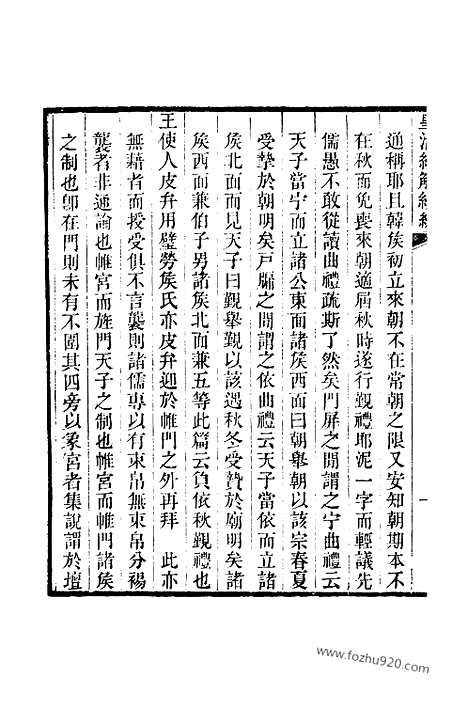 皇清經解續編
一
通稱耶且韓矦初立來朝不在常朝之限又安知朝期本不
在秋而免喪來朝適屆秋時遂行覲禮耶泥一字而輕議先
儒愚不敢從讀曲禮疏斯了然矣門屏之閒謂之宁曲禮云
天子當宁而立諸公東面諸矦西面曰朝舉朝以該宗春夏
受摯於朝明矣戸牖之閒謂之依曲禮云天子當依而立諸
矦北面而見天子曰覲舉覲以該遇秋冬受贄於廟明矣諸
矦西面兼伯子男諸矦北面兼五等此篇云負依秋覲禮也
王使人皮弁用璧勞矦氏亦皮弁迎於帷門之外再拜　此亦
無藉者而授受俱不言襲則諸儒專以有束帛無束帛分裼
襲者非通論也帷宮而旌門天子之制也帷宮而帷門諸矦
之制也卽在門則未有不圍其四旁以象宮者集說謂於壇
www.fozhu920.com